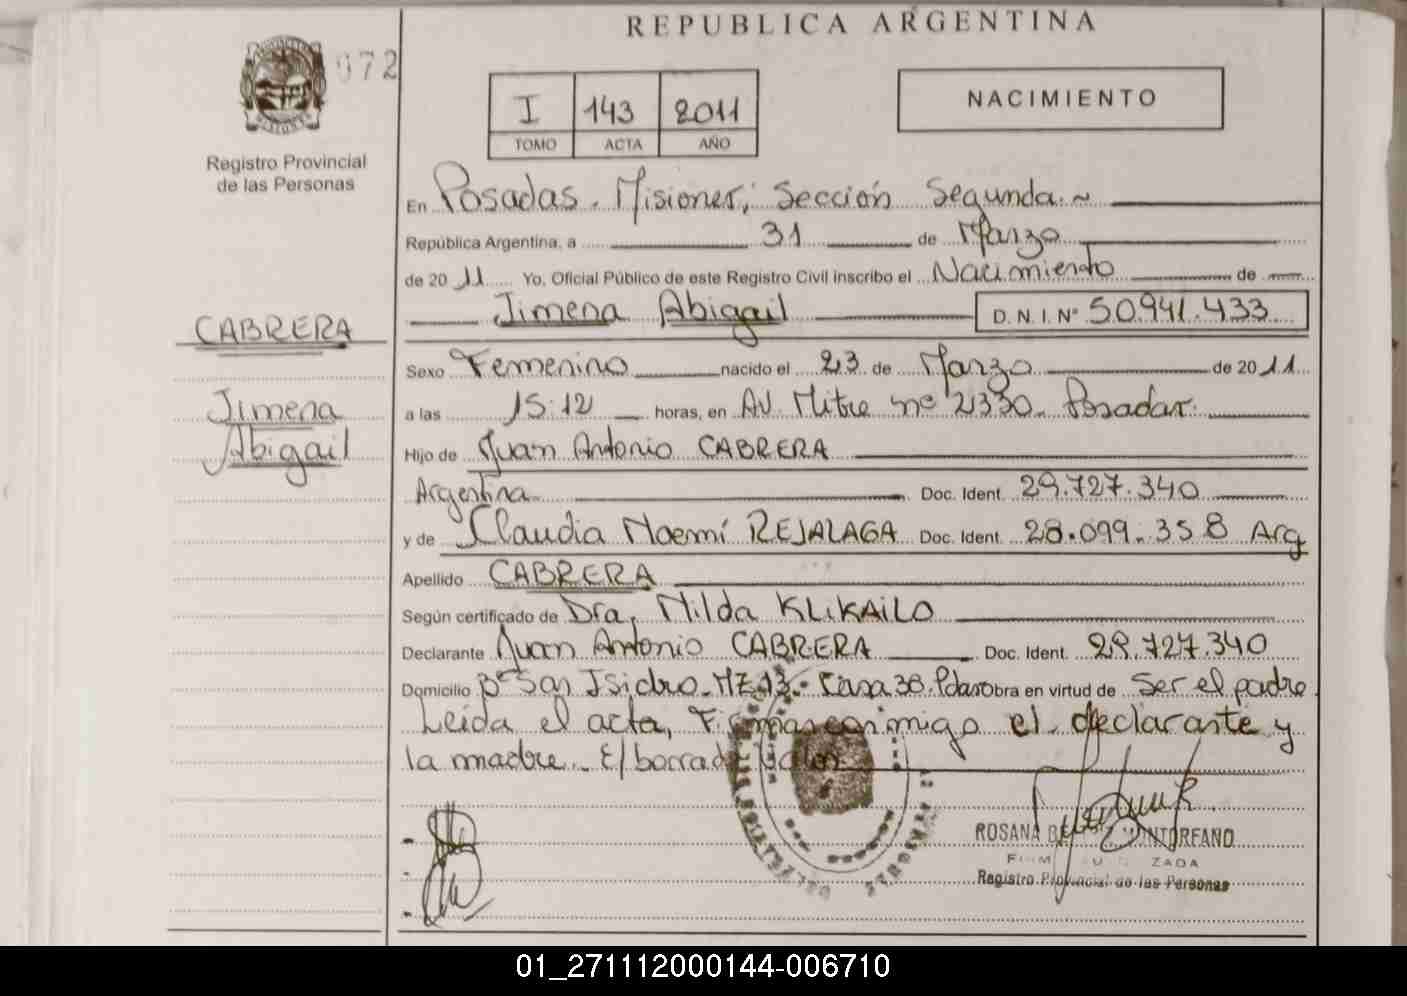 REPUBLICA ARGENTINA
072
I 143 2011
TOMO ACTA AÑO
NACIMIENTO
Registro Provincial
de las Personas
En Posadas. Misiones, Sección Segunda.~
República Argentina, a 31 de Marzo
de 2011 Yo, Oficial Público de este Registro Civil inscribo el Nacimiento de
Jimena Abigail D. N. I. N° 50.941.433
CABRERA
Sexo Femenino nacido el 23 de Marzo de 2011
Jimena
a las 15:12 horas, en Av Mitre nº 2330. Posadas.
Abigail
Hijo de Juan Antonio CABRERA
Argentina Doc. Ident. 29.727.340
y de Claudia Noemí REJALAGA Doc. Ident. 28.099.358 Arg
Apellido CABRERA
Según certificado de Dra. Nilda KLIKAILO
Declarante Juan Antonio CABRERA Doc. Ident. 29.727.340
Domicilio Bº San Isidro. MZ 13. Casa 38. obra en virtud de Ser el padre
Leída el acta, Firman conmigo el declarante y
la madre. E/borrado
ROSANA
Registro Provincial de las Personas
01_271112000144-006710